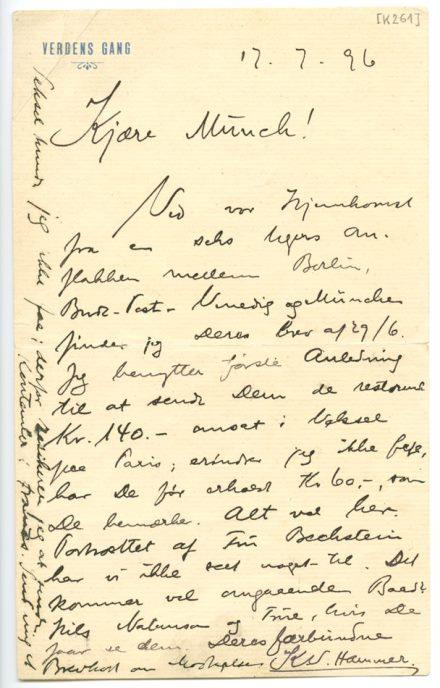 [K261]
VERDENS GANG
17. 7. 96
Kjære Munch!
Ved vor Hjemkomst
fra en seks Ugers Om-
flakken mellem Berlin,
Buda-Pest - Venedig og München
finder jeg Deres Brev af 29/6.
Jeg benytter første Anledning
til at sende Dem de resterende
Kr. 140.- omsat i Veksel
paa Paris; erindrer jeg ikke feil,
har De før erholdt Kr 60,-, som
De bemærker. Alt vel her.
Portrættet af Fru Bechstein
har vi ikke seet noget til. Det
kommer vel omgaaende Baad?
Hils Natanson og Frue, hvis De
faar se dem. Deres forbundne
Brevkort om Modtagelsen K.W. Hammer.
Veksel kunde jeg ikke faa; derfor jeg at sende
Contanter i Francs. Send mig et